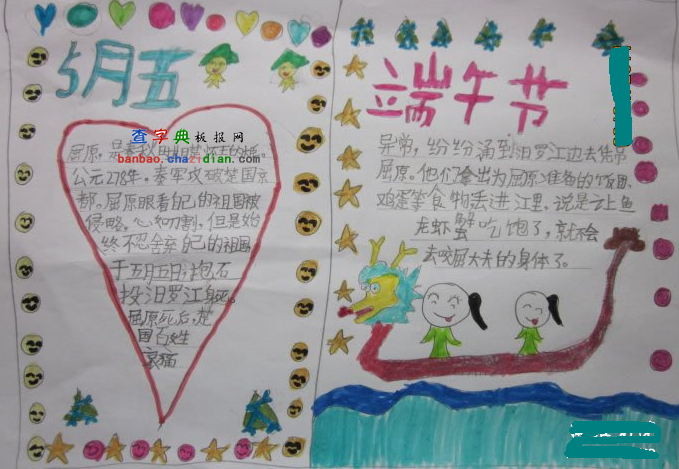 5月五
查字典板报网
banbao.chazidian.com
屈原,是春秋时期楚怀王的大臣。
公元278年,秦军攻破楚国京
都。屈原眼看自己的祖国被
侵略,心如刀割,但是始
终不忍舍弃自己的祖国,
于五月五日,抱石
投汨罗江身死。
屈原死后,楚
国百姓
哀痛
端午节
异常,纷纷涌到汨罗江边去凭吊
屈原。他们拿出为屈原准备的饭团、
鸡蛋等食物丢进江里,说是让鱼
龙虾蟹吃饱了,就不会
去咬屈大夫的身体了。